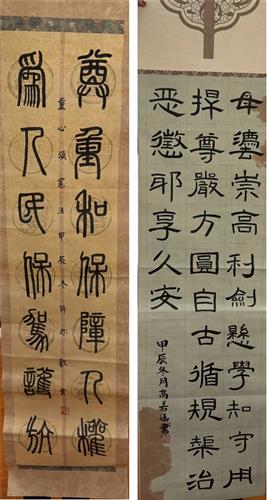 尊重和保障人權
爲人民保駕護航
童心頌憲法甲辰冬許亦歡書
母灋崇高利劍懸學知守用
捍尊嚴方圓自古循規榘治
恶懲耶享久安
甲辰冬月高若涵書